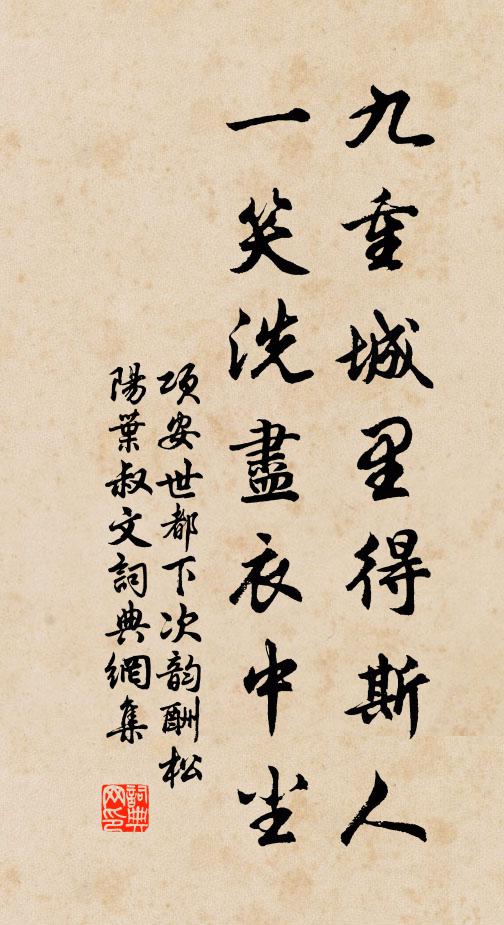 九重城里得斯人
一笑洗盡衣中尘
项安世都下次韵酬松
陽葉叔文詞典網集
詞典网印